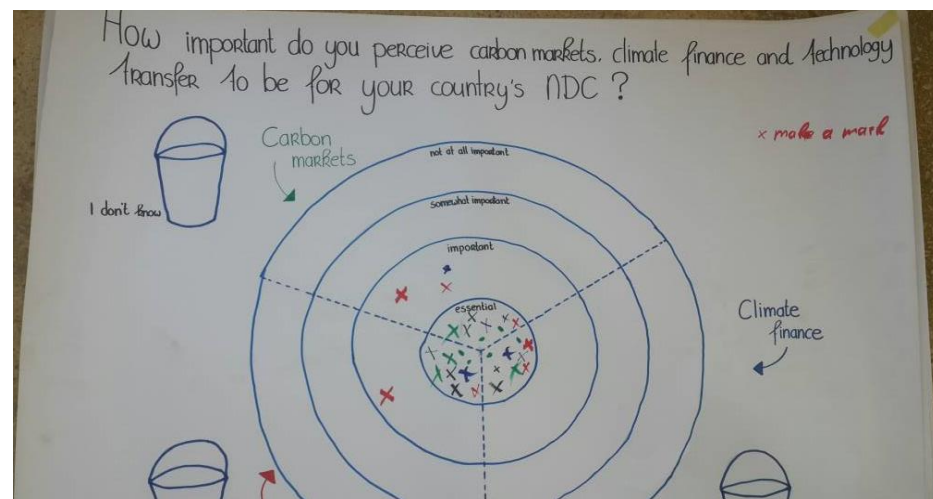 How important do you perceive carbon markets, climate finance and technology
transfer to be for your country's NDC ?
x make a mark
Carbon
markets
I don't know
not at all important
somewhat important
important
essential
Climate
finance